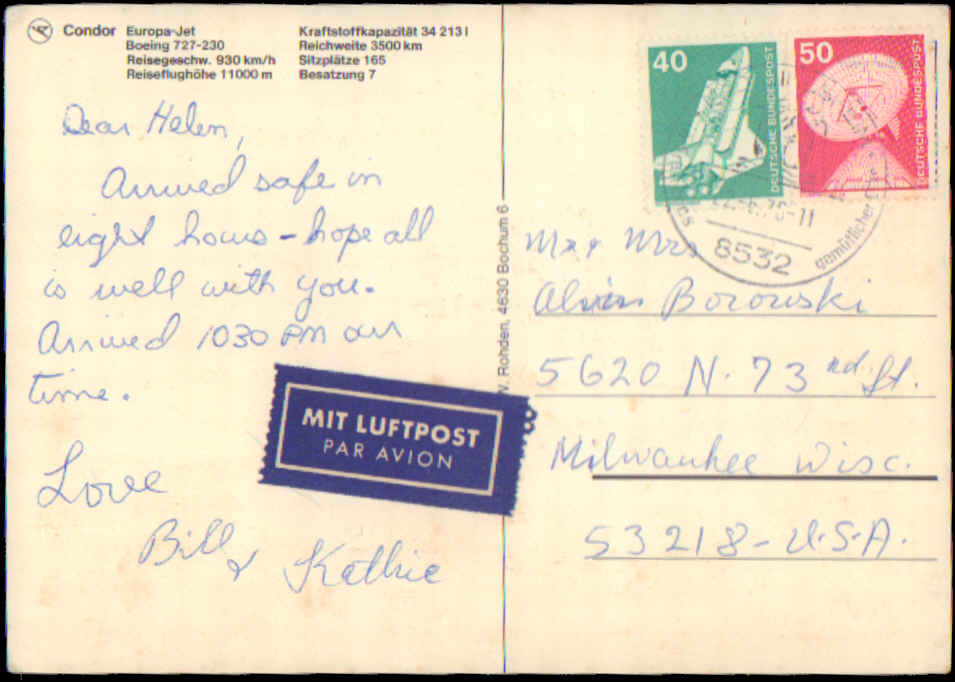 Condor Europa-Jet
Boeing 727-230
Reisegeschw. 930 km/h
Reiseflughöhe 11000 m
Kraftstoffkapazität 34 213 l
Reichweite 3500 km
Sitzplätze 165
Besatzung 7
Dear Helen,
Arrived safe in
eight hours - hope all
is well with you.
Arrived 1030 PM our
time.
Love
Bill & Kathie
MIT LUFTPOST
PAR AVION
Rohden, 4630 Bochum 6
40
DEUTSCHE BUNDESPOST
50
DEUTSCHE BUNDESPOST
8532
gemütlicher
Mr & Mrs
Alvin Borowski
5620 N. 73 rd. St.
Milwaukee Wisc.
53218 - U.S.A.